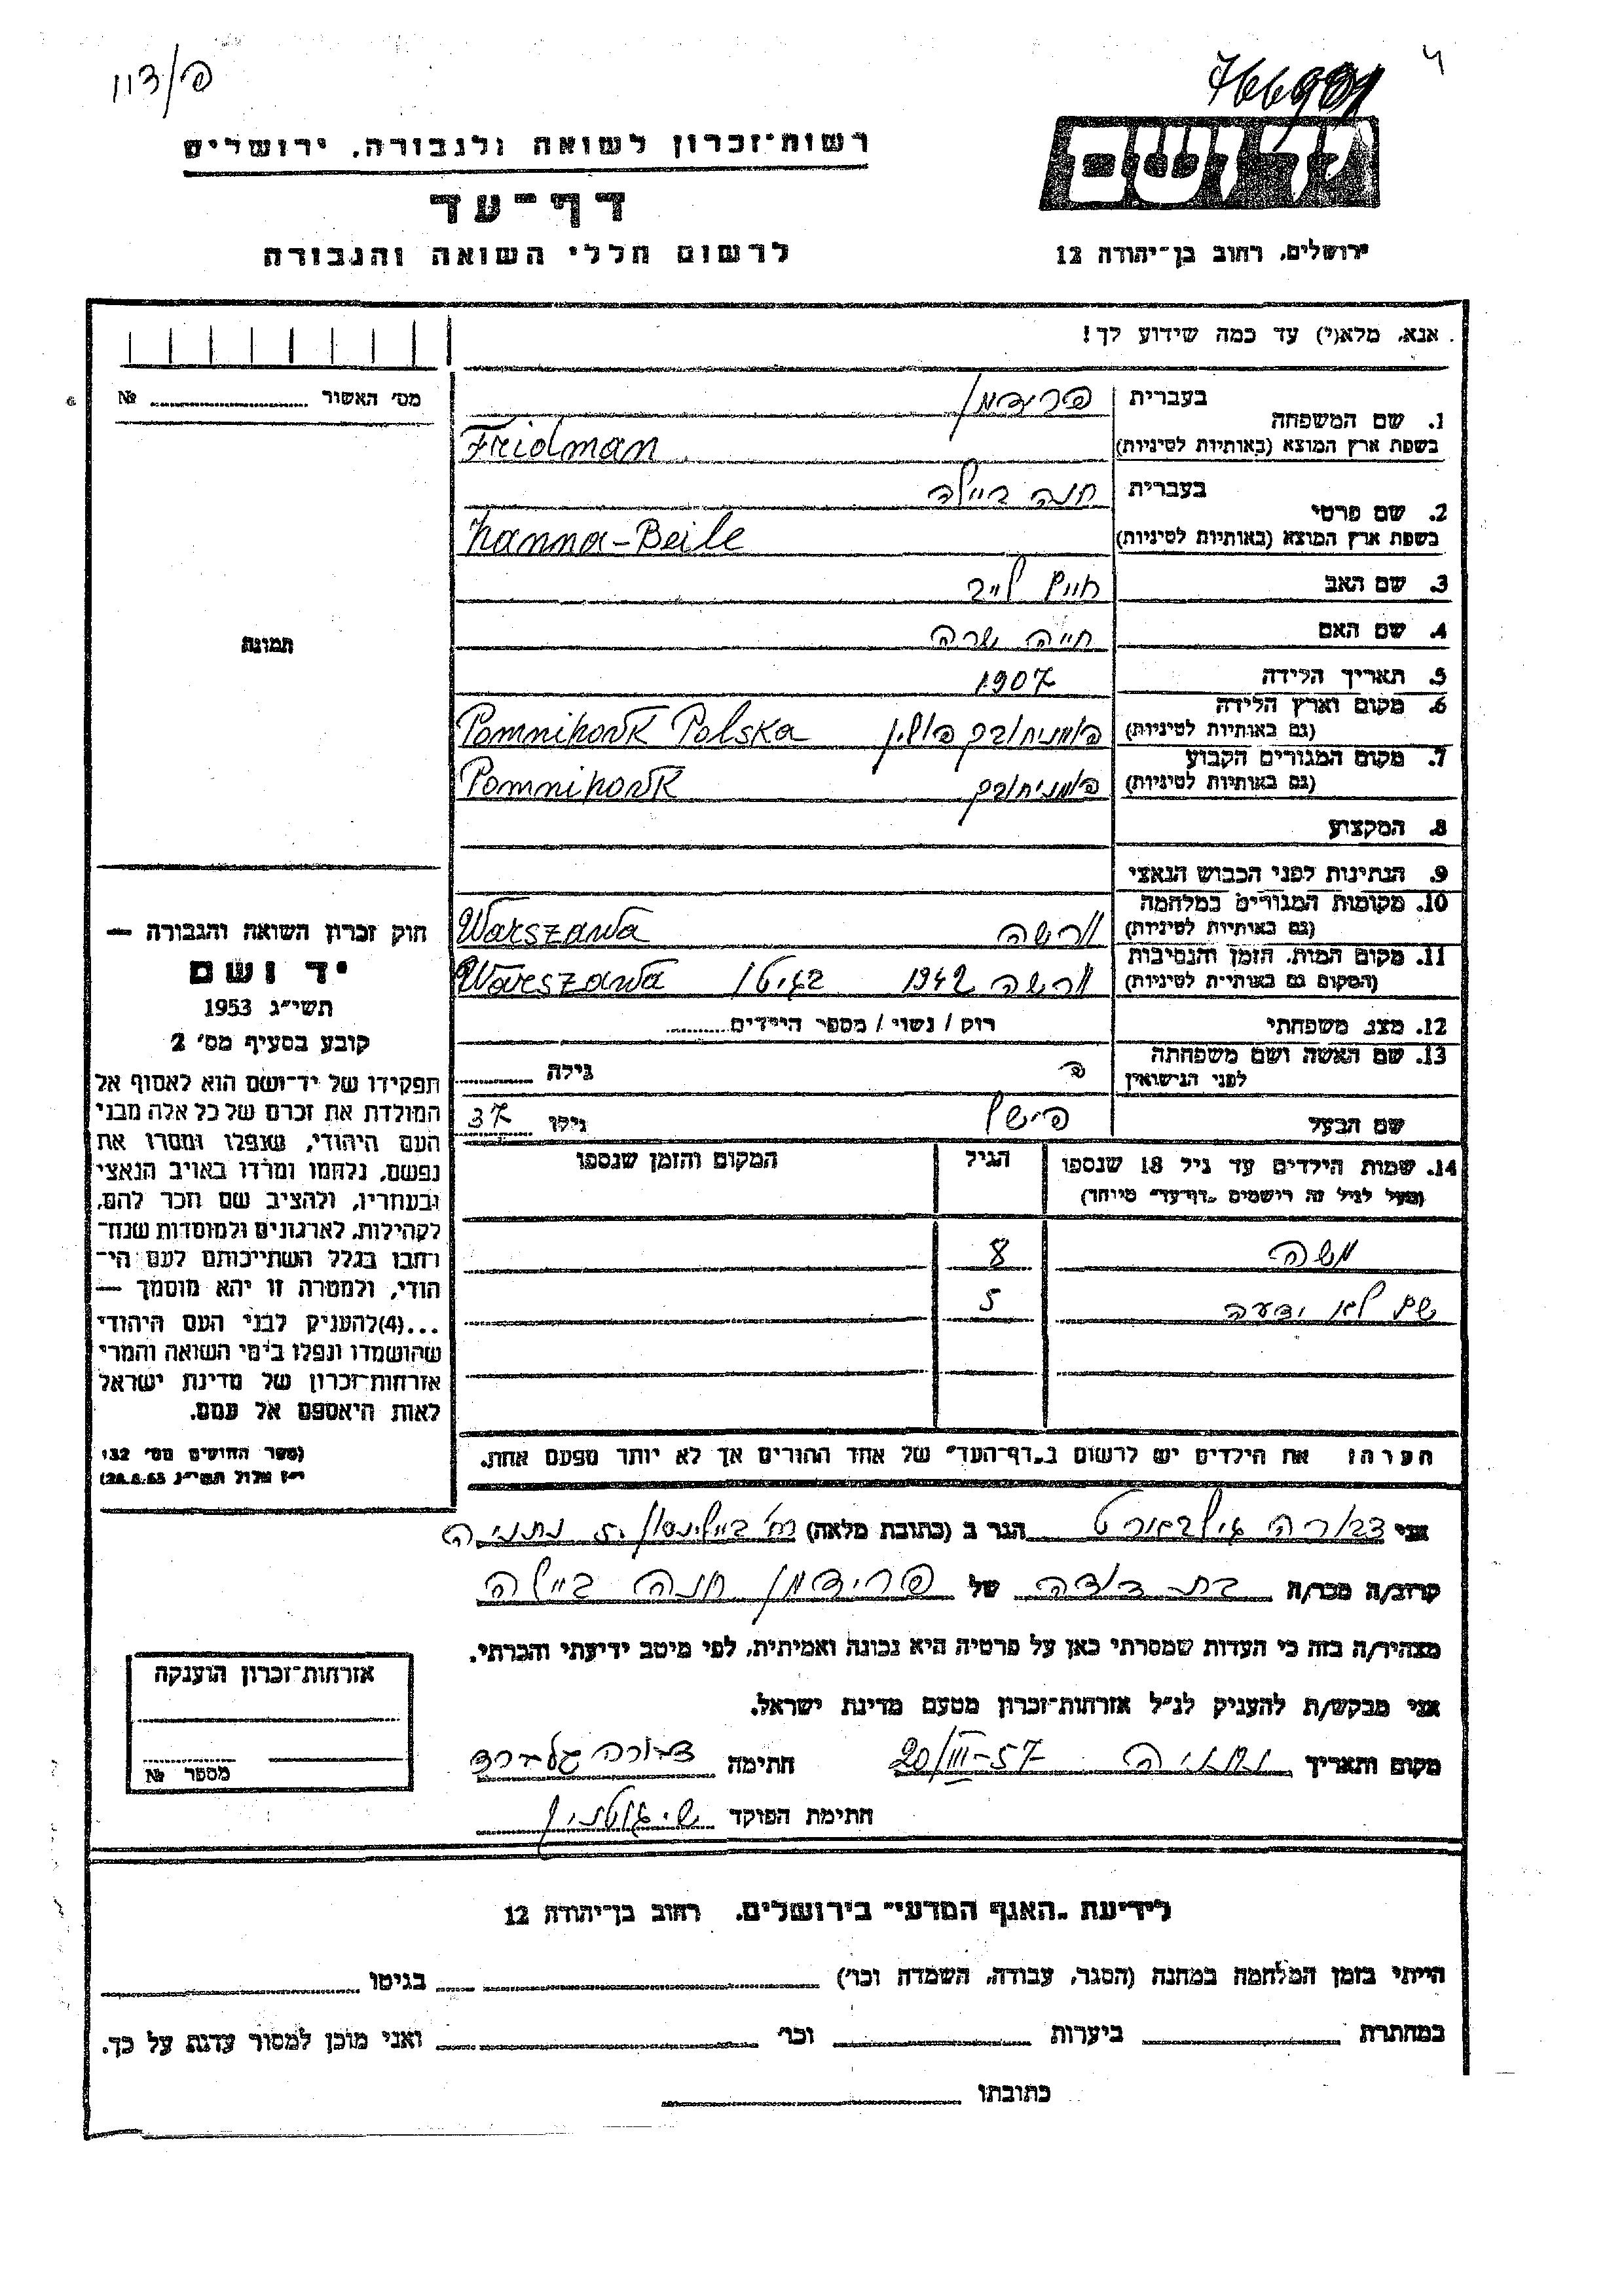 פ/דון
766901
4
יד ושם
רשות־זכרון לשואה ולגבורה, ירושלים
דף־עד
לרשום חללי השואה והגבורה
ירושלים, רחוב בן־יהודה 12
אנא, מלא(י) עד כמה שידוע לך!
מס׳ האשור № 
1. שם המשפחה
בעברית פרידמן
בשפת ארץ המוצא (באותיות לטיניות) Fridman
2. שם פרטי
בעברית חנה ביילה
בשפת ארץ המוצא (באותיות לטיניות) Hanna-Beile
3. שם האב חיים לייב
4. שם האם חייה שרה
5. תאריך הלידה 1907
6. מקום וארץ הלידה
(גם באותיות לטיניות) פומניחובק פולין Pomnihowek Polska
7. מקום המגורים הקבוע
(גם באותיות לטיניות) פומניחובק Pomnihowek
8. המקצוע
9. הנתינות לפני הכבוש הנאצי
10. מקומות המגורים במלחמה
(גם באותיות לטיניות) ורשה Warszawa
11. מקום המות, הזמן והנסיבות
(המקום גם באותיות לטיניות) ורשה 1942 בגיטו Warszawa
12. מצב משפחתי רוק / נשוי / מספר הילדים
13. שם האשה ושם משפחתה
לפני הנישואין גילה
שם הבעל פישל גילו 37
14. שמות הילדים עד גיל 18 שנספו הגיל המקום והזמן שנספו
(מעל לגיל זה רישמים "דף־עד" מיוחד)
משה 8
שם לא ידעה 5
הערה: את הילדים יש לרשום ב"דף־העד" של אחד ההורים אך לא יותר מפעם אחת.
תמונה
חוק זכרון השואה והגבורה —
יד ושם
תשי״ג 1953
קובע בסעיף מס׳ 2
תפקידו של יד־ושם הוא לאסוף אל
המולדת את זכרם של כל אלה מבני
העם היהודי, שנפלו ומסרו את
נפשם, נלחמו ומרדו באויב הנאצי
ובעוזריו, ולהציב שם וזכר להם,
לקהילות, לארגונים ולמוסדות שנח־
רבו בגלל השתייכותם לעם הי־
הודי, ולמטרה זו יהא מוסמך —
...(4)להעניק לבני העם היהודי
שהושמדו ונפלו בימי השואה והמרי
אזרחות־זכרון של מדינת ישראל
לאות היאספם אל עמם.
(ספר החוקים מס׳ 132
י״ז אלול תשי״ג 28.8.53)
אני דבורה הגר ב (כתובת מלאה) רח׳ ביילינסון 5 נתניה
קרוב/ה מכר/ה בת דודה של פרידמן חנה ביילה
מצהיר/ה בזה כי העדות שמסרתי כאן על פרטיה היא נכונה ואמיתית, לפי מיטב ידיעתי והכרתי.
אני מבקש/ת להעניק לנ״ל אזרחות־זכרון מטעם מדינת ישראל.
מקום ותאריך נתניה 20/III-57 חתימה דבורה
חתימת הפוקד
אזרחות־זכרון הוענקה
מספר №
לידיעת "האגף המדעי" בירושלים, רחוב בן־יהודה 12
הייתי בזמן המלחמה במחנה (הסגר, עבודה, השמדה וכו׳) בגיטו
במחתרת ביערות וכו׳ ואני מוכן למסור עדות על כך.
כתובתו